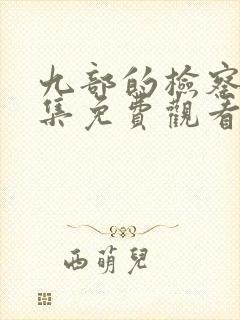 九部的檢察
集免費觀看
西萌兒